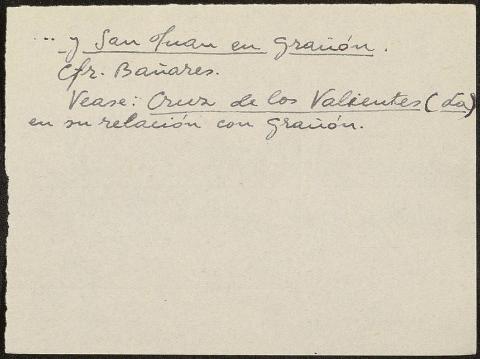 ... y San Juan en Grañón.
Cfr. Bañares.
Vease: Cruz de los Valientes (La)
en su relación con Grañón.